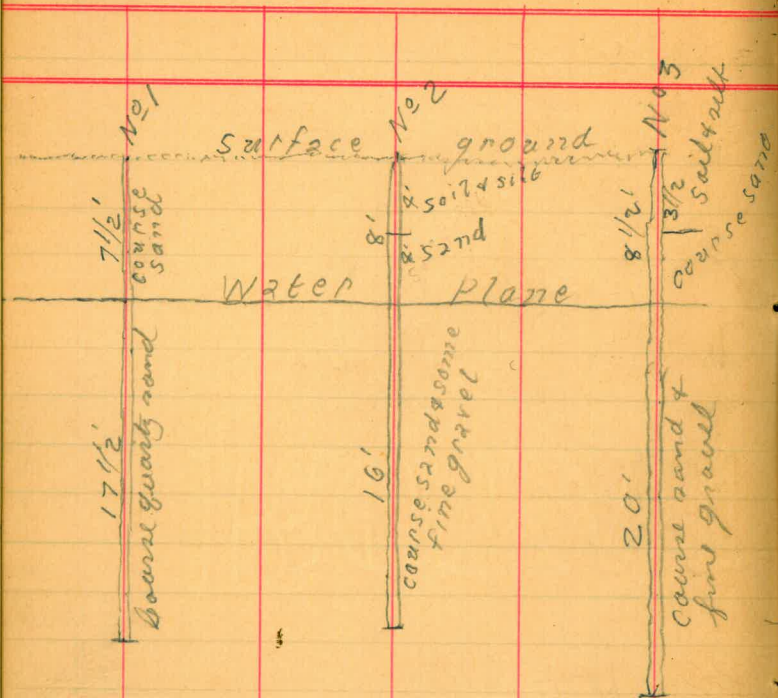 No 1
No 2
No 3
Surface ground
7 1/2'
course
sand
8'
4' soil & silt
4' sand
8 1/2'
3 1/2
soil & silt
course sand
Water Plane
17 1/2'
Coarse quartz sand
16'
course sand & some
fine gravel
20'
course sand &
fine gravell